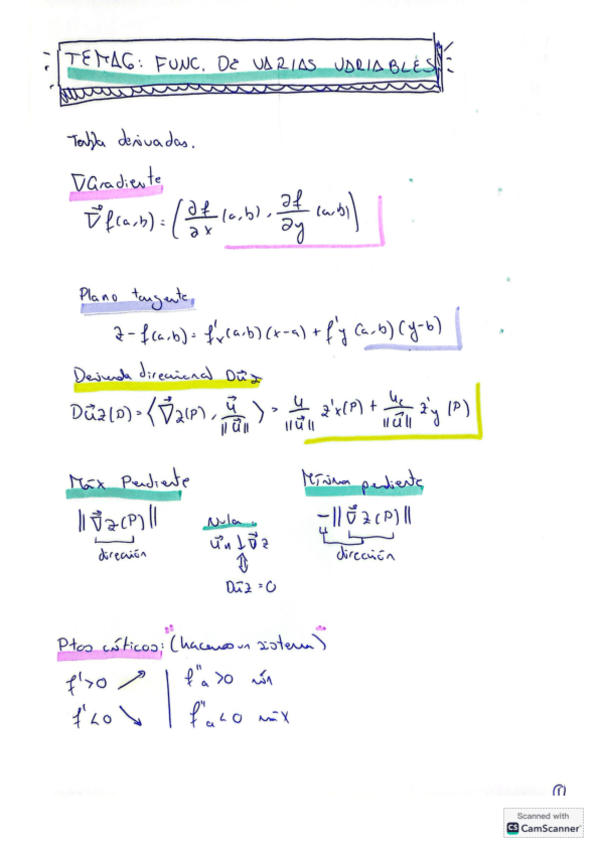 TEMA6: FUNC. DE VARIAS VARIABLES
Tabla derivadas.
∇Gradiente
∇⃗f(a,b) = (∂f/∂x (a,b), ∂f/∂y (a,b))
Plano tangente
z - f(a,b) = f'x (a,b)(x-a) + f'y (a,b)(y-b)
Derivada direccional Du⃗z
Du⃗z(P) = ⟨∇⃗z(P), u⃗/||u⃗||⟩ = u/||u⃗|| z'x(P) + u₂/||u⃗|| z'y(P)
Máx Pendiente
||∇⃗z(P)||
dirección
Nula
u⃗n ⊥ ∇⃗z
⇕
Du⃗z = 0
Mínima pendiente
-||∇⃗z(P)||
dirección
Ptos críticos: (hacemos un sistema)
f'>0 ↗ | f''a >0 mín
f'<0 ↘ | f''a <0 máx
①
Scanned with
CS CamScanner